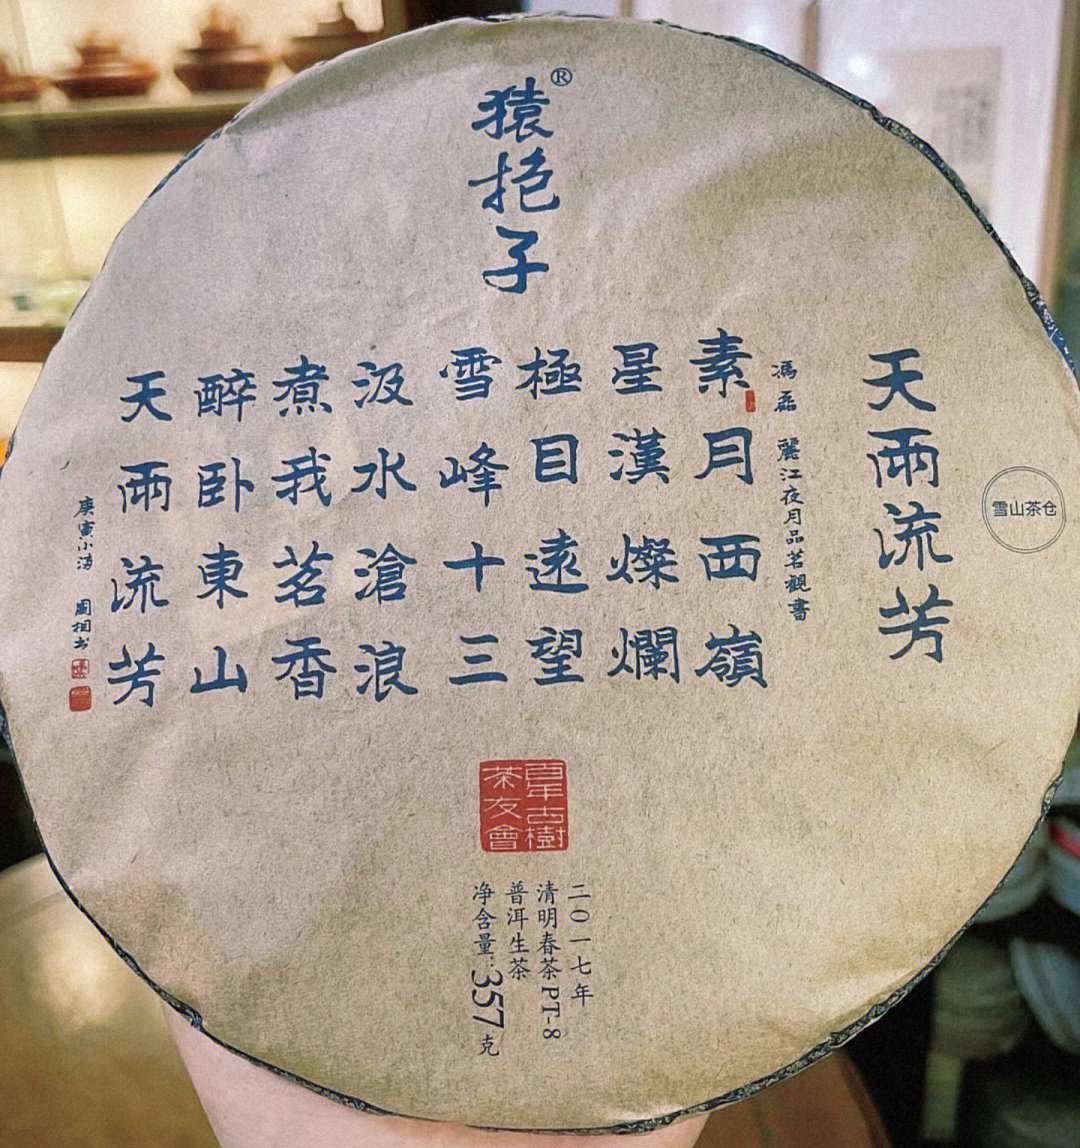 猿抱子®
雪山茶仓
天雨流芳
馮磊 麗江夜月品茗觀書
素月西嶺
星漢燦爛
極目遠望
雪峰十三
汲水滄浪
煮我茗香
醉卧東山
天雨流芳
庚寅小 相书
百年古樹
茶友會
二〇一七年
清明春茶PT-8
普洱生茶
净含量:357克